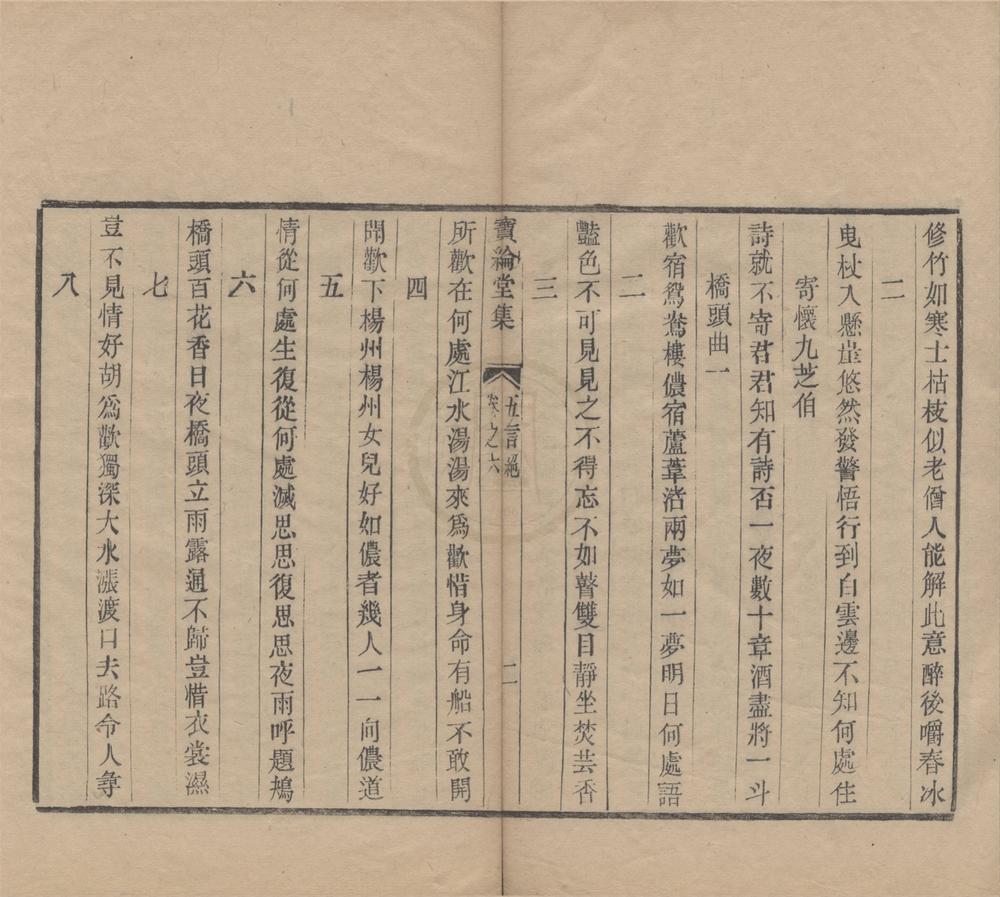 修竹如寒士枯枝似老僧人能解此意醉後嚼春冰
二
曳杖入懸崖悠然發警悟行到白雲邊不知何處住
寄懷九芝伯
詩就不寄君君知有詩否一夜數十章酒盡將一斗
橋頭曲一
歡宿鴛鴦樓儂宿蘆葦渚兩夢如一夢明日何處語
二
豔色不可見見之不得忘不如瞽雙目靜坐焚芸香
三
寶綸堂集
五言絕
卷之六
二
所歡在何處江水湯湯來爲歡惜身命有船不敢開
四
聞歡下楊州楊州女兒好如儂者幾人一一向儂道
五
情從何處生復從何處滅思思復思思夜雨呼題鴂
六
橋頭百花香日夜橋頭立雨露通不歸豈惜衣裳濕
七
豈不見情好胡爲歡獨深大水漲渡口去路令人爭
八